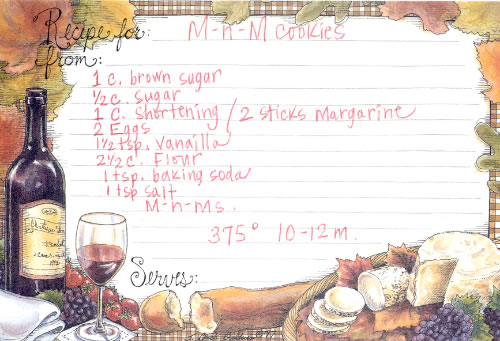 Recipe for: M-n-M cookies
from:
1 c. brown sugar
½ c. sugar
1 c. shortening / 2 sticks Margarine
2 Eggs
1½ tsp. vanailla
2½ c. Flour
1 tsp. baking soda
1 tsp salt
M-n-Ms.
375° 10-12 m.
Serves: